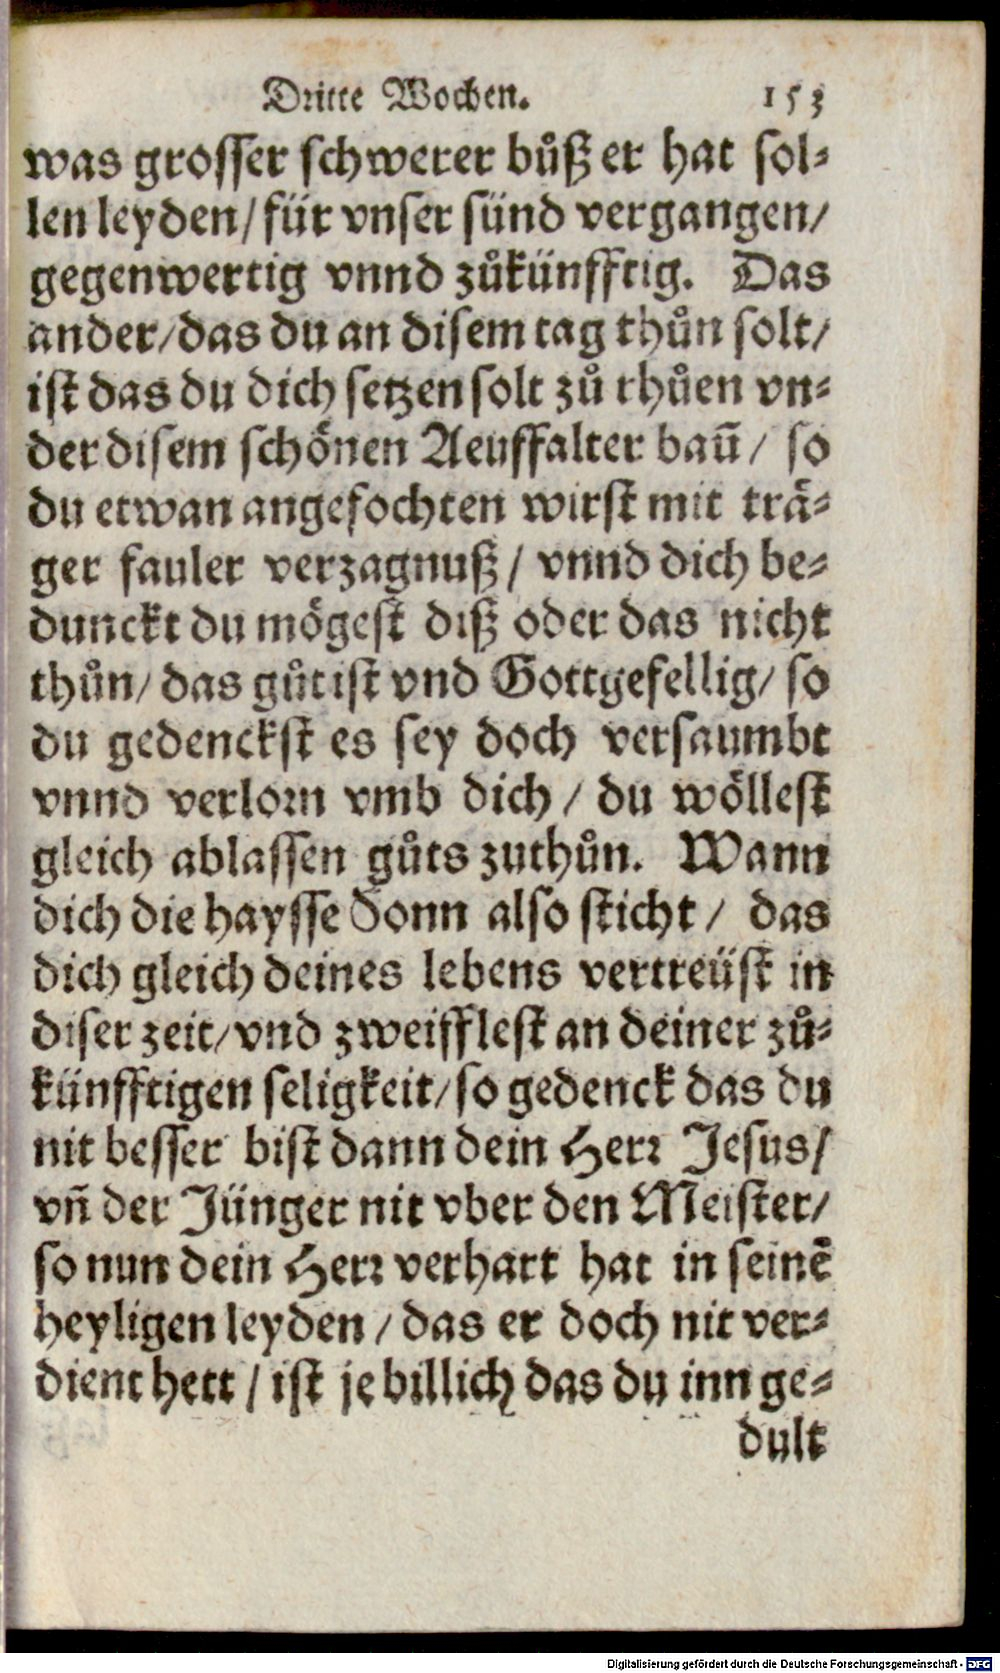 Dritte Wochen. 153
was grosser schwerer bůß er hat sol-
len leyden/ für vnser sünd vergangen/
gegenwertig vnnd zůkünfftig. Das
ander/ das du an disem tag thůn solt/
ist das du dich setzen solt zů rhůen vn-
der disem schönen Aeuffalter baū/ so
du etwan angefochten wirst mit trä-
ger fauler verzagnuß/ vnnd dich be-
dunckt du mögest diß oder das nicht
thůn/ das gůt ist vnd Gottgefellig/ so
du gedenckst es sey doch versaumbt
vnnd verlorn vmb dich/ du wöllest
gleich ablassen gůts zuthůn. Wann
dich die haysse Sonn also sticht/ das
dich gleich deines lebens vertreüst in
diser zeit/ vnd zweifflest an deiner zů-
künfftigen seligkeit/ so gedenck das du
nit besser bist dann dein Herr Jesus/
vñ der Jünger nit vber den Meister/
so nun dein Herr verhart hat in seinē
heyligen leyden/ das er doch nit ver-
dient hett/ ist je billich das du inn ge-
dult
Digitalisierung gefördert durch die Deutsche Forschungsgemeinschaft - DFG